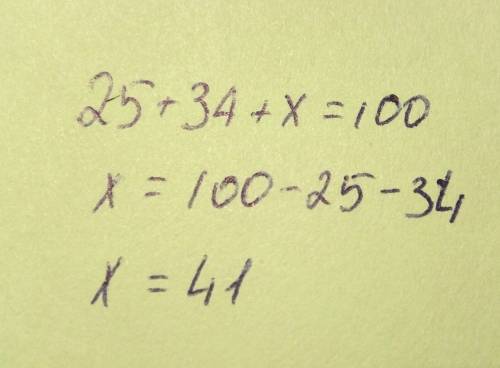 25+34+x=100
x=100-25-34
x=41